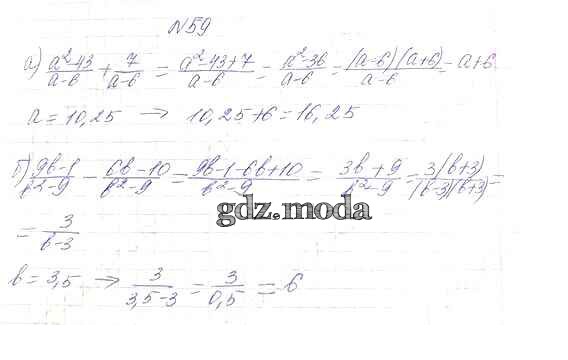 №59
а) \frac{a^2-43}{a-6} + \frac{7}{a-6} = \frac{a^2-43+7}{a-6} = \frac{a^2-36}{a-6} = \frac{(a-6)(a+6)}{a-6} = a+6
a = 10,25 → 10,25+6 = 16,25
б) \frac{9b-1}{b^2-9} - \frac{6b-10}{b^2-9} = \frac{9b-1-6b+10}{b^2-9} = \frac{3b+9}{b^2-9} = \frac{3(b+3)}{(b-3)(b+3)} =
gdz.moda
= \frac{3}{b-3}
b = 3,5 → \frac{3}{3,5-3} = \frac{3}{0,5} = 6